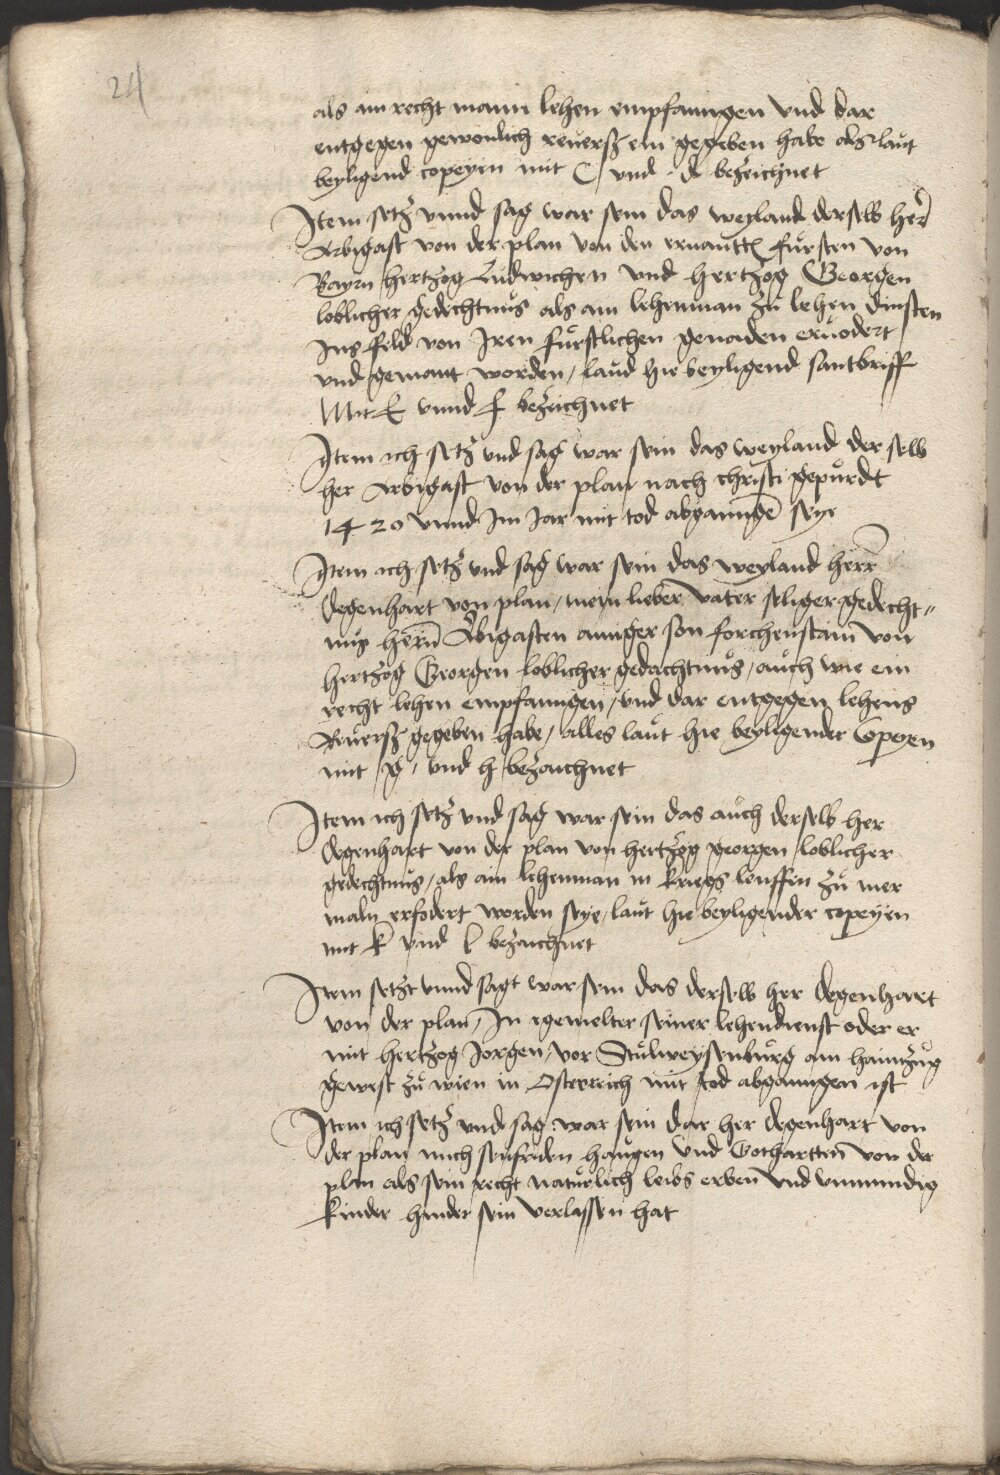 24
als ain recht mann lehen empfanngen vnd dar
entgegen gewonlich reuersz ein gegeben habe als laut
beyligend copeyen mit C vnd d bezeichnet
Item setz vnnd sag war sein das weyland derselb her
Arbigast von der plan von den ernantt fursten von
Bayrn hertzog Ludwichen vnd hertzog Georgen
loblicher gedechtnus als ain lehenman zu lehen dinsten
Ins feld von Iren furstlichen genaden eruodert
vnd gemant worden, laud hie beyligend santbriff
Mit E vnnd f bezaichnet
Item ich setz vnd sag war sein das weyland der selb
her Arbigast von der plan nach christi gepurdt
1420 vnnd Im Jar mit tod abganngen seye
Item ich setz vnd sag war sein das weyland herr
Degenhart von plan, mein lieber vater seliger gedecht„
nus hern Abigasten ainiger son forchenstain von
hertzog Georgen loblicher gedechtnus, auch wie ein
recht lehen empfanngen, vnd dar entgegen lehens
Reuersz gegeben habe, alles laut hie beyligender Copeyen
mit g, vnd h bezaichnet
Item ich setz vnd sag war sein das auch derselb her
Degenhart von der plan von hertzog georgen loblicher
gedechtnus, als ain lehenman in kriegs leuffen zu mer
maln erfodert worden seye, laut hie beyligender copeyen
mit k vnd l bezaichnet
Item setzt vnnd sagt war sein das derselb her Degenhart
von der plan, In egemelter seiner lehendienst oder er
mit hertzog Jorgen, vor Stulweysenburg am haimzug
gewest zu wien in Osterreich mit tod abganngen ist
Item ich setz vnd sag war sein dar her Degenhart von
der plan mich seyfriden haugen vnd Gotthartten von der
plan als sein recht naturlich leibs erben vnd vnmundig
kinder hinder sein verlassen hat